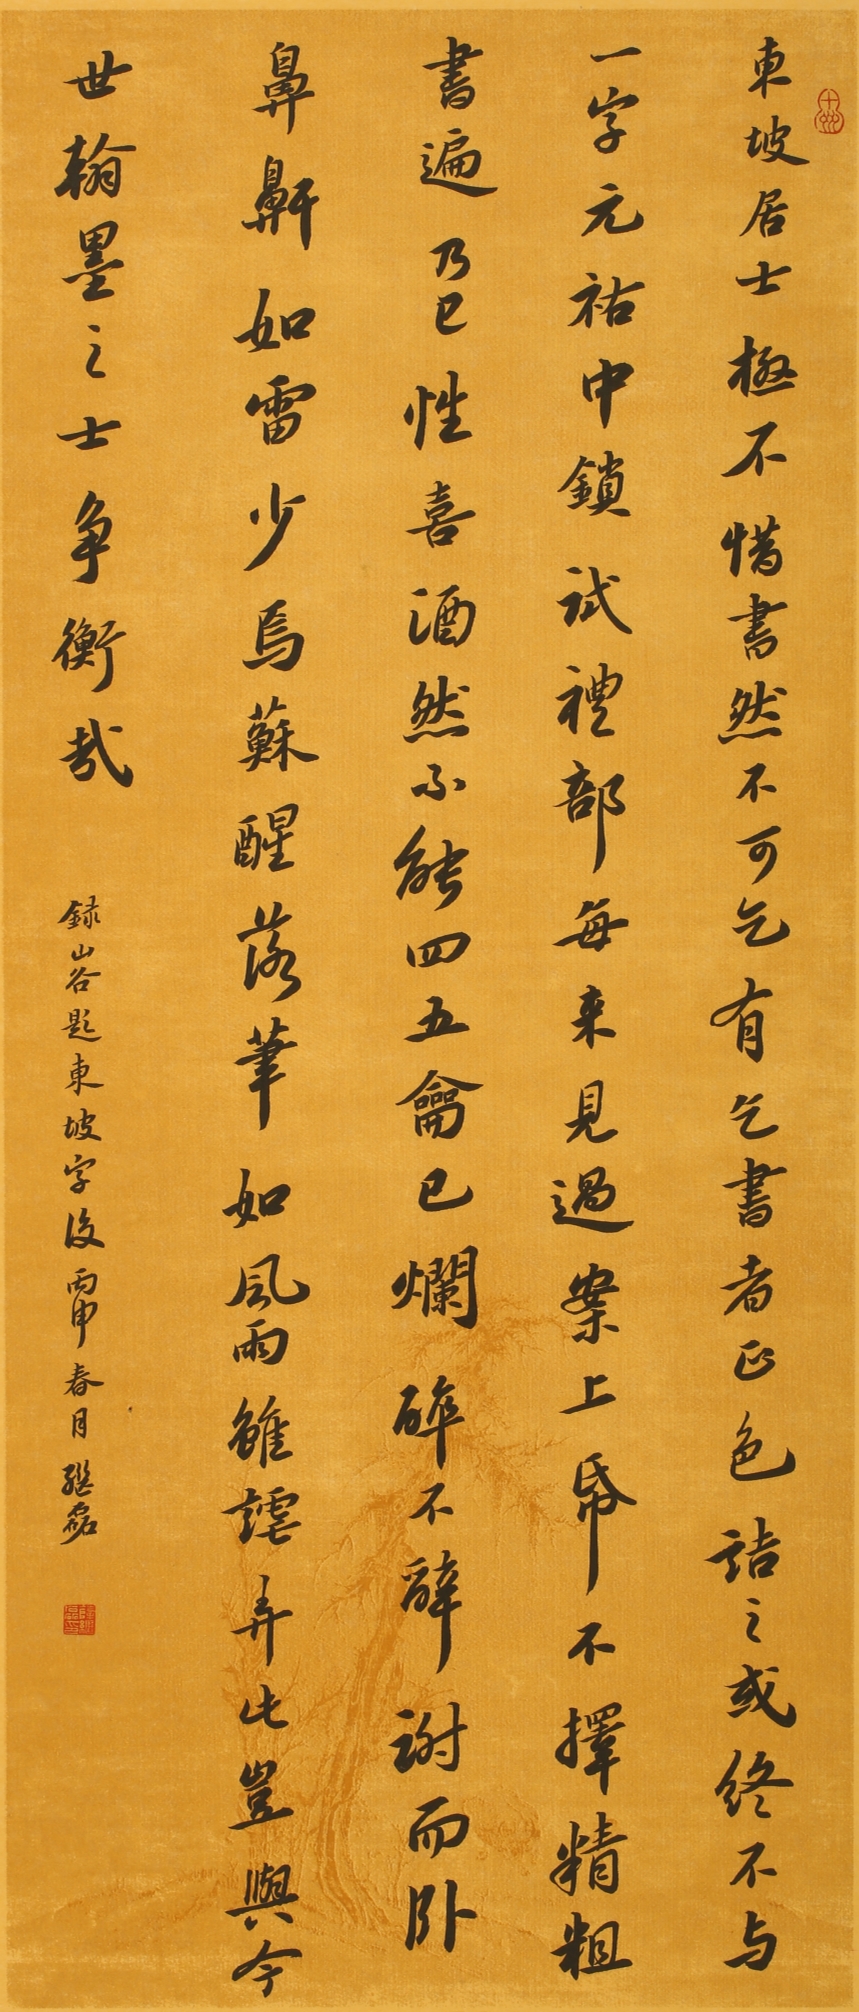 東坡居士極不惜書然不可乞有乞書者正色詰之或終不与
一字元祐中鎖試禮部每来見過案上帋不擇精粗
書遍乃已性喜酒然不能四五龠已爛醉不辭謝而卧
鼻鼾如雷少焉蘇醒落筆如風雨雖謔弄此豈與今
世翰墨之士争衡哉
録山谷題東坡字後丙申春月继磊